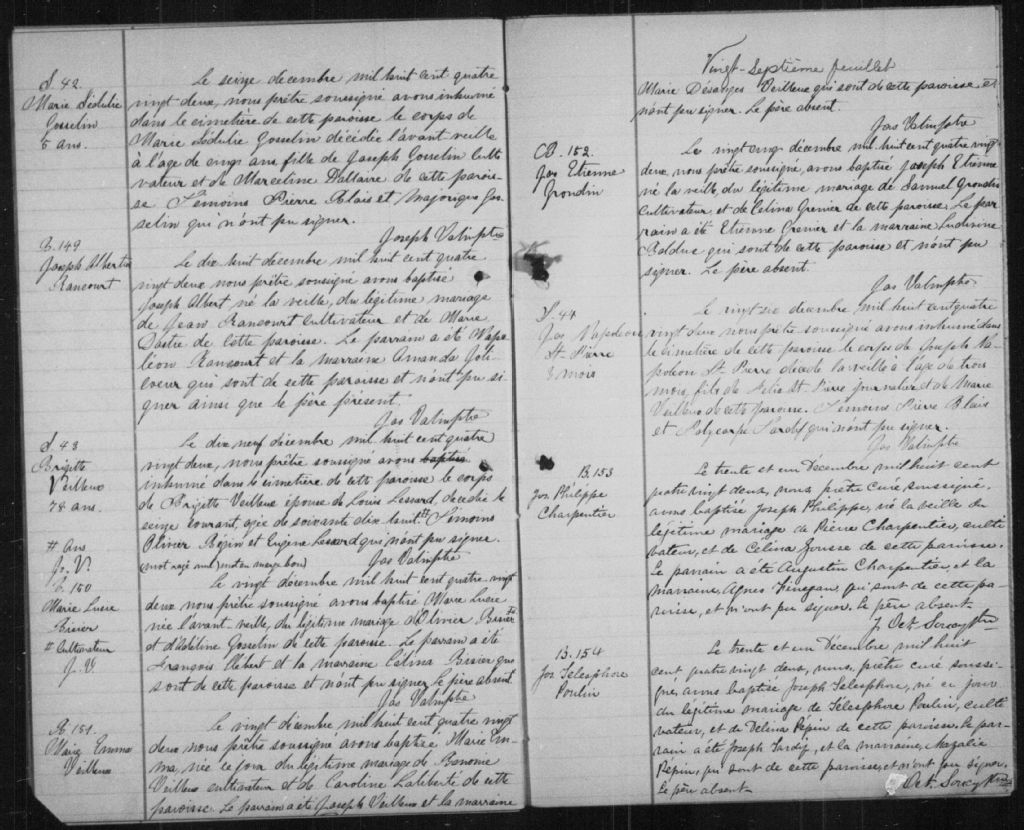 S. 42
Marie Sédulie
Gosselin
5 ans.
Le seize décembre mil huit cent quatre
vingt deux, nous prêtre soussigné avons inhumé
dans le cimetière de cette paroisse le corps de
Marie Sédulie Gosselin décédée l'avant veille
à l'age de cinq ans fille de Joseph Gosselin Culti
vateur et de Marceline Dallaire de cette parois-
se Témoins Pierre Blais et Gos-
selin qui n'ont pu signer.
Joseph Valin ptre
B. 149
Joseph Albert
Rancourt
Le dix huit décembre mil huit cent quatre
vingt deux nous prêtre soussigné avons baptisé
Joseph Albert né la veille, du légitime mariage
de Jean Rancourt Cultivateur et de Marie
de cette paroisse. Le parrain a été Napo
léon Rancourt et la marraine Amanda Joli
coeur qui sont de cette paroisse et n'ont pu si
gner ainsi que le père présent.
Jos Valin ptre
S. 43
Brigitte
Veilleux
78 ans.
Le dix neuf décembre mil huit cent quatre
vingt deux, nous prêtre soussigné avons baptisé
inhumé dans le cimetière de cette paroisse le corps
de Brigitte Veilleux épouse de Louis Lessard, décédée le
seize courant, agée de soixante dix huit # Témoins
Olivier Pépin et Eugène Lessard qui n'ont pu signer.
(mot rayé nul) mot en marge bon) Jos Valin ptre
# Ans
Js. V.
B. 150
Marie Lucie
Bisier
# Cultivateur
J. V
Le vingt décembre mil huit cent quatre vingt
deux nous prêtre soussigné avons baptisé Marie Lucie
née l'avant-veille, du légitime mariage d'Olivier Bisier #
et d'Adéline Gosselin de cette paroisse. Le parrain a été
François Hébert et la marraine Célina Bisier qui
sont de cette paroisse et n'ont pu signer le père absent.
Jos Valin ptre
B. 151.
Marie Emma
Veilleux
Le vingt décembre mil huit cent quatre vingt
deux nous prêtre soussigné avons baptisé Marie Em-
ma, née ce jour du légitime mariage de
Veilleux cultivateur et de Caroline Laliberté de cette
paroisse. Le parrain a été Joseph Veilleux et la marraine
Vingt-Septième feuillet
Marie Désanges Veilleux qui sont de cette paroisse et
n'ont pu signer. Le père absent.
Jos Valin ptre
B. 152.
Jos Etienne
Grondin
Le vingt cinq décembre mil huit cent quatre vingt
deux, nous prêtre soussigné, avons baptisé Joseph Etienne
né la veille du légitime mariage de Samuel Grondin
Cultivateur et de Célina Grenier de cette paroisse. Le par
rain a été Etienne Grenier et la marraine Ludivine
Bolduc qui sont de cette paroisse et n'ont pu
signer. Le père absent.
Jos Valin ptre
S. 44
Jos Napoléon
St-Pierre
3 mois
Le vingt six décembre mil huit cent quatre
vingt deux nous prêtre soussigné avons inhumé dans
le cimetière de cette paroisse le corps de Joseph Na-
poléon St Pierre décédé la veille à l'age de trois
mois, fils de St. Pierre journalier et de Marie
Veilleux de cette paroisse. Témoins Pierre Blais
et Polycarpe Tardif qui n'ont pu signer.
Jos Valin ptre
B. 153
Jos Philippe
Charpentier
Le trente et un Décembre mil huit cent
quatre vingt deux, nous, prêtre curé soussigné,
avons baptisé Joseph Philippe, né la veille du
légitime mariage de Pierre Charpentier, culti
vateur, et de Célina de cette paroisse.
Le parrain a été Augustin Charpentier, et la
marraine, Agnes Finegan, qui sont de cette pa-
roisse, et n'ont pu signer. Le père absent
J. Oct. Soucy Ptre
B. 154
Jos Télesphore
Poulin
Le trente et un Décembre, mil huit
cent quatre vingt deux, nous, prêtre curé soussi-
gné, avons baptisé Joseph Télesphore, né ce jour
du légitime mariage de Télesphore Poulin, culti
vateur, et de Délina Pépin de cette paroisse. Le par-
rain a été Joseph Tardif, et la marraine, Nazalie
Pépin, qui sont de cette paroisse, et n'ont pu signer.
Le père absent
J. Oct. Soucy Ptre